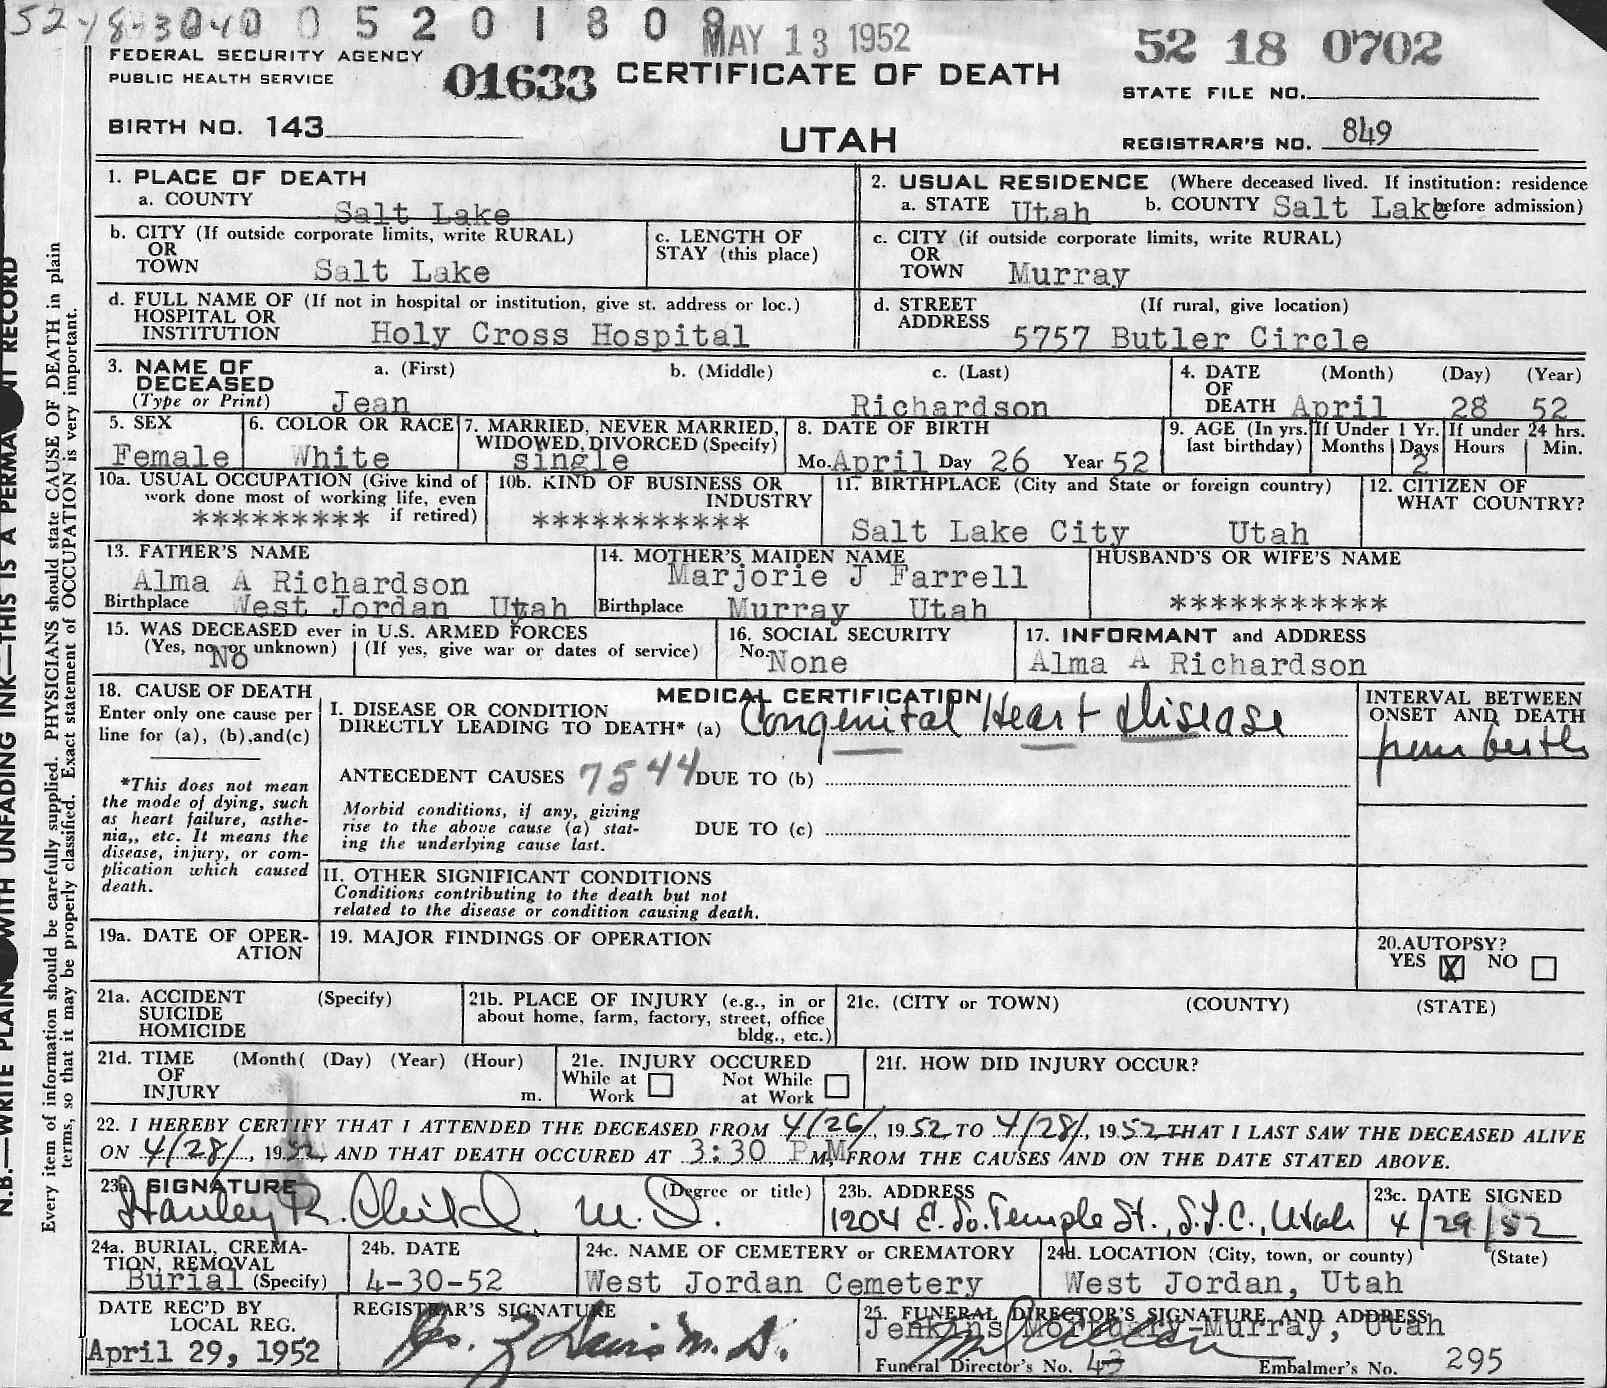 5248-3040 0 5 2 0 1 8 0 8 MAY 13 1952
52 18 0702
FEDERAL SECURITY AGENCY
PUBLIC HEALTH SERVICE
01633 CERTIFICATE OF DEATH
STATE FILE NO.
BIRTH NO. 143
UTAH
REGISTRAR'S NO. 849
1. PLACE OF DEATH
a. COUNTY
Salt Lake
2. USUAL RESIDENCE (Where deceased lived. If institution: residence
a. STATE Utah b. COUNTY Salt Lake before admission)
b. CITY (If outside corporate limits, write RURAL)
OR
TOWN Salt Lake
c. LENGTH OF
STAY (this place)
c. CITY (if outside corporate limits, write RURAL)
OR
TOWN Murray
d. FULL NAME OF (If not in hospital or institution, give st. address or loc.)
HOSPITAL OR
INSTITUTION Holy Cross Hospital
d. STREET (If rural, give location)
ADDRESS
5757 Butler Circle
3. NAME OF a. (First) b. (Middle) c. (Last)
DECEASED
(Type or Print) Jean Richardson
4. DATE (Month) (Day) (Year)
OF
DEATH April 28 52
5. SEX
Female
6. COLOR OR RACE
White
7. MARRIED, NEVER MARRIED,
WIDOWED, DIVORCED (Specify)
single
8. DATE OF BIRTH
Mo. April Day 26 Year 52
9. AGE (In yrs.
last birthday)
If Under 1 Yr.
Months Days
2
If under 24 hrs.
Hours Min.
10a. USUAL OCCUPATION (Give kind of
work done most of working life, even
********* if retired)
10b. KIND OF BUSINESS OR
INDUSTRY
***********
11. BIRTHPLACE (City and State or foreign country)
Salt Lake City Utah
12. CITIZEN OF
WHAT COUNTRY?
13. FATHER'S NAME
Alma A Richardson
Birthplace West Jordan Utah
14. MOTHER'S MAIDEN NAME
Marjorie J Farrell
Birthplace Murray Utah
HUSBAND'S OR WIFE'S NAME
***********
15. WAS DECEASED ever in U.S. ARMED FORCES
(Yes, no, or unknown) (If yes, give war or dates of service)
No
16. SOCIAL SECURITY
No. None
17. INFORMANT and ADDRESS
Alma A Richardson
18. CAUSE OF DEATH
Enter only one cause per
line for (a), (b),and(c)
*This does not mean
the mode of dying, such
as heart failure, asthe-
nia,, etc. It means the
disease, injury, or com-
plication which caused
death.
MEDICAL CERTIFICATION
I. DISEASE OR CONDITION
DIRECTLY LEADING TO DEATH* (a) Congenital Heart Disease
ANTECEDENT CAUSES 7544 DUE TO (b)
Morbid conditions, if any, giving
rise to the above cause (a) stat-
ing the underlying cause last.
DUE TO (c)
INTERVAL BETWEEN
ONSET AND DEATH
from birth
II. OTHER SIGNIFICANT CONDITIONS
Conditions contributing to the death but not
related to the disease or condition causing death.
19a. DATE OF OPER-
ATION
19. MAJOR FINDINGS OF OPERATION
20.AUTOPSY?
YES X NO
21a. ACCIDENT (Specify)
SUICIDE
HOMICIDE
21b. PLACE OF INJURY (e.g., in or
about home, farm, factory, street, office
bldg., etc.)
21c. (CITY or TOWN) (COUNTY) (STATE)
21d. TIME (Month( (Day) (Year) (Hour)
OF
INJURY m.
21e. INJURY OCCURED
While at Not While
Work at Work
21f. HOW DID INJURY OCCUR?
22. I HEREBY CERTIFY THAT I ATTENDED THE DECEASED FROM 4/26/, 1952 TO 4/28/, 1952 THAT I LAST SAW THE DECEASED ALIVE
ON 4/28/, 1952, AND THAT DEATH OCCURED AT 3:30 P M, FROM THE CAUSES AND ON THE DATE STATED ABOVE.
23a SIGNATURE (Degree or title)
Stanley R. Child, M.D.
23b. ADDRESS
1204 E. So. Temple St., S.L.C., Utah
23c. DATE SIGNED
4/29/52
24a. BURIAL, CREMA-
TION, REMOVAL
Burial (Specify)
24b. DATE
4-30-52
24c. NAME OF CEMETERY or CREMATORY
West Jordan Cemetery
24d. LOCATION (City, town, or county) (State)
West Jordan, Utah
DATE REC'D BY
LOCAL REG.
April 29, 1952
REGISTRAR'S SIGNATURE
M.D.
25. FUNERAL DIRECTOR'S SIGNATURE AND ADDRESS
Jenkins Mortuary-Murray, Utah
Funeral Director's No. 43 Embalmer's No. 295
N.B.—WRITE PLAIN WITH UNFADING INK—THIS IS A PERMA NT RECORD
Every item of information should be carefully supplied. PHYSICIANS should state CAUSE OF DEATH in plain
terms, so that it may be properly classified. Exact statement of OCCUPATION is very important.